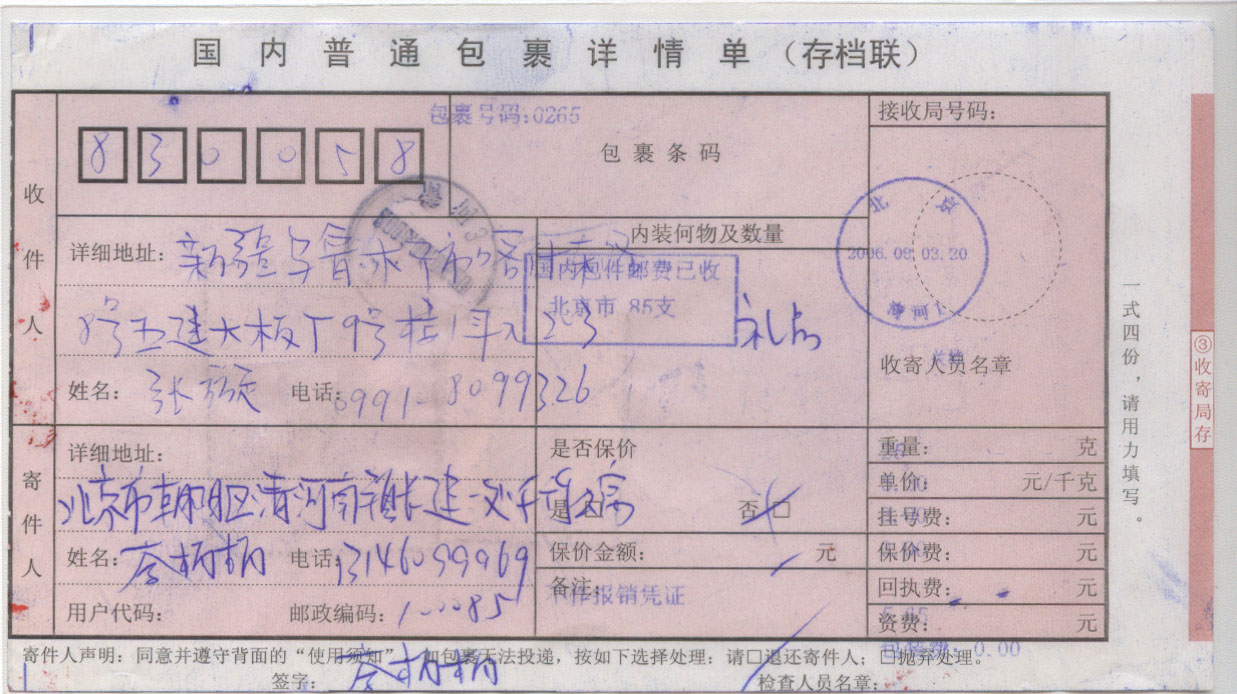 国内普通包裹详情单（存档联）
包裹号码:0265
接收局号码：
包裹条码
830058
收件人
详细地址：新疆乌鲁木齐市
内装何物及数量
国内包件邮费已收
北京市 85支
8号五建大板厂9号楼1单元203
礼品
2006.09.03.20
北京
清河
姓名：张 电话：0991-8099326
收寄人员名章
寄件人
详细地址：
北京市朝阳区清河南镇长建一处
是否保价
是□ 否□
姓名：李 电话：13146099969
保价金额： 元
用户代码： 邮政编码：100085
备注：
不作报销凭证
重量： 克
单价： 元/千克
挂号费： 元
保价费： 元
回执费： 元
资费： 元
0.00
寄件人声明：同意并遵守背面的“使用须知”，如包裹无法投递，按如下选择处理：请□退还寄件人；□抛弃处理。
签字：
检查人员名章：
一式四份，请用力填写。
③收寄局存